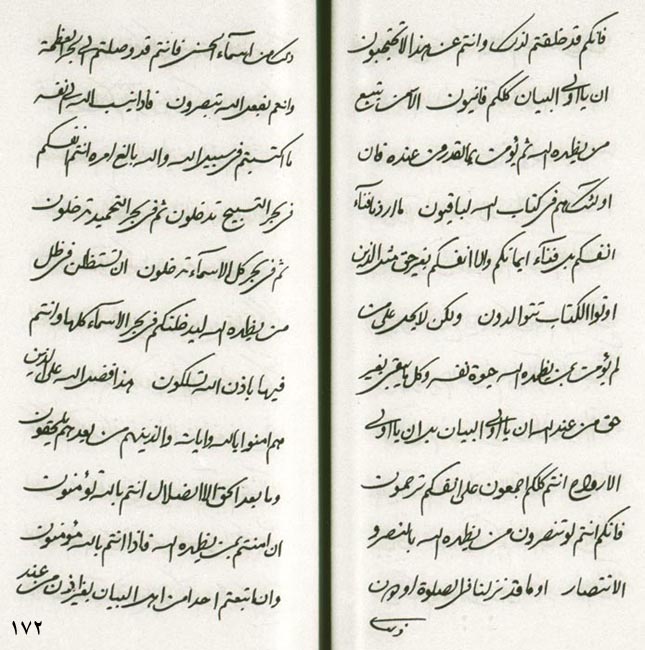 فانكم قد خلقتم لذلك وانتم عن هذا لا تحتجبون
ان يا اولي البيان كلكم فانيون الا من يتبع
من يظهره الله ثم يؤمن بما لقدر من عنده فان
اولئك هم في كتاب الله لباقيون ما اردنا فناء
انفسكم بل فناء ايمانكم والا انفسكم بغير حق مثل الذين
اوتوا الكتاب تتوالدون ولكن لا يحل على من
لم يؤمن بمن يظهره الله حيوة نفسه وكل ما يبقى بغير
حق من عند الله ان يا اولي البيان بل ان يا اولي
الارواح انتم كلكم اجمعون على انفسكم ترحمون
فانكم انتم لو تنصرون من يظهره الله بالنصر و
الانتصار او ما قد نزلنا في الصلوة
ذلك من اسماء الحسنى فانتم قد وصلتم الى بحر العظمة
وانتم بفعل الله تبصرون فاذا ينسب الله الى نفسه
ما اكتسبتم في سبيل الله والله بالغ امره انتم انفسكم
في بحر التسبيح تدخلون ثم في بحر التحميد تدخلون
ثم في بحر كل الاسماء تدخلون ان تستظلن في ظل
من يظهره الله ليدخلنكم في بحر الاسماء كلها وانتم
فيها باذن الله تسلكون هذا فضل الله على الذين
هم امنوا بالله واياته والذينهم من بعدهم يلحقون
وما بعد الحق الا الضلال انتم بالله تؤمنون
ان امنتم بمن يظهره الله فاذا انتم بالله مؤمنون
وان اتبعتم احدا من اهل البيان بغير اذن من عند
١٧٢